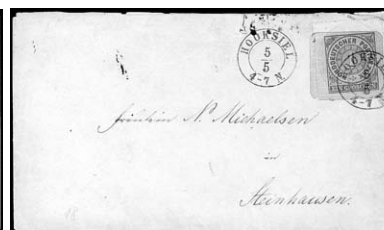 HOOKSIEL
5
5
4-7 N.
HOOKSIEL
4-7 N.
Fräulein N. Michaelsen
in
Steinhausen.
18